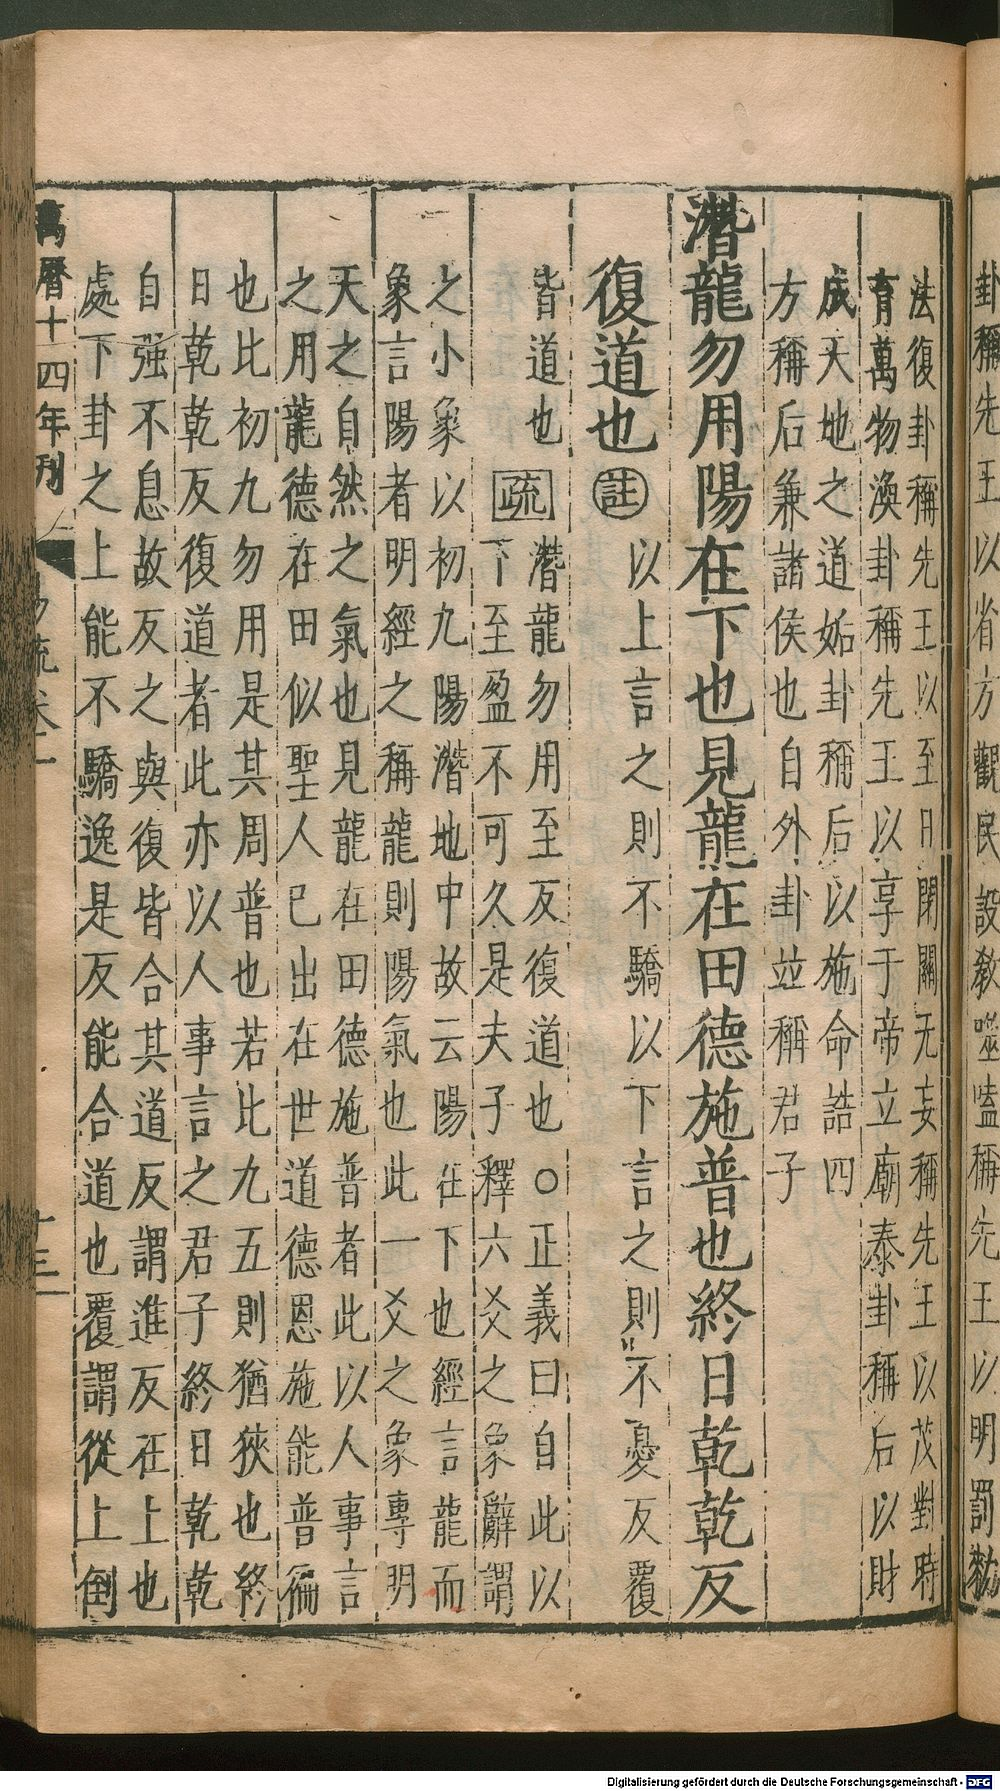 卦稱先王以省方觀民設敎噬嗑稱先王以明罰勑
法復卦稱先王以至日閉關无妄稱先王以茂對時
育萬物渙卦稱先王以享于帝立廟泰卦稱后以財
成天地之道姤卦稱后以施命誥四
方稱后兼諸侯也自外卦竝稱君子
潛龍勿用陽在下也見龍在田德施普也終日乾乾反
復道也
註
以上言之則不驕以下言之則不憂反覆
皆道也
疏
潛龍勿用至反復道也○正義曰自此以
下至盈不可久是夫子釋六爻之象辭謂
之小象以初九陽潛地中故云陽在下也經言龍而
象言陽者明經之稱龍則陽氣也此一爻之象專明
天之自然之氣也見龍在田德施普者此以人事言
之用龍德在田似聖人已出在世道德恩施能普徧
也比初九勿用是其周普也若比九五則猶狹也終
日乾乾反復道者此亦以人事言之君子終日乾乾
自强不息故反之與復皆合其道反謂進反在上也
處下卦之上能不驕逸是反能合道也覆謂從上倒
萬曆十四年刊
易疏卷一
十三
Digitalisierung gefördert durch die Deutsche Forschungsgemeinschaft - DFG